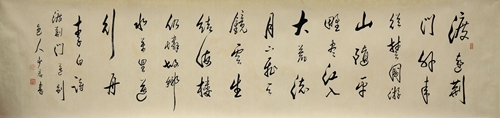 渡远荆
门外来
從楚國游
山随平
野尽江入
大荒流
月下飛天
鏡雲生
结海楼
仍憐故鄉
水万里送
行舟
李白诗
渡荆门送别